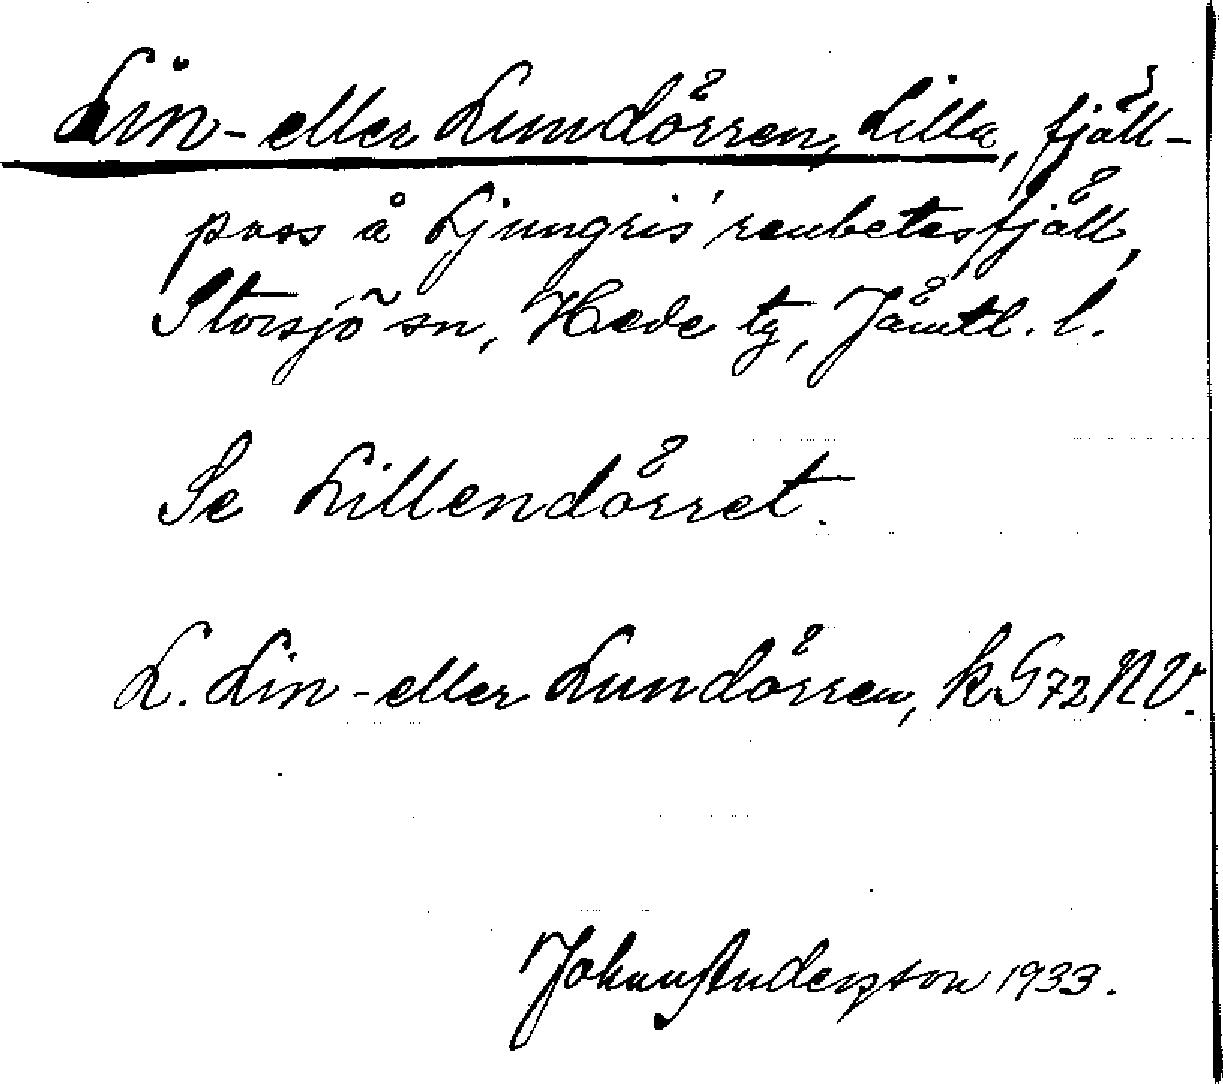 Lin- eller Lundörren, Lilla, fjäll-
pass å Ljungris' renbetesfjäll,
Storsjö sn, Hede tg, Jämtl. l.
Se Lillendörret.
L. Lin- eller Lundörren, k G72 NV.
Johan Anderzson 1933.